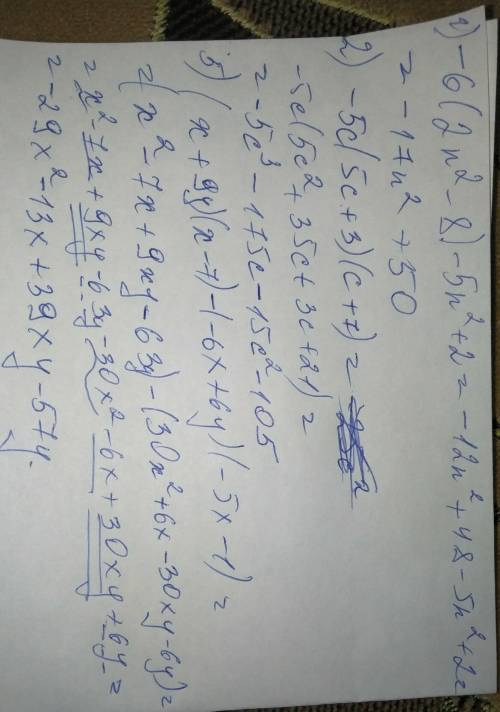 1) -6(2n²-8)-5n²+2= -12n²+48-5n²+2=
= -17n²+50
2) -5c(5c+3)(c+7)=
-5c(5c²+35c+3c+21)=
= -5c³-175c-15c²-105
5) (x+9y)(x-7)-(-6x+6y)(-5x-1)=
=(x²-7x+9xy-63y)-(30x²+6x-30xy-6y)=
=x²-7x+9xy-63y-30x²-6x+30xy+6y=
= -29x²-13x+39xy-57y.